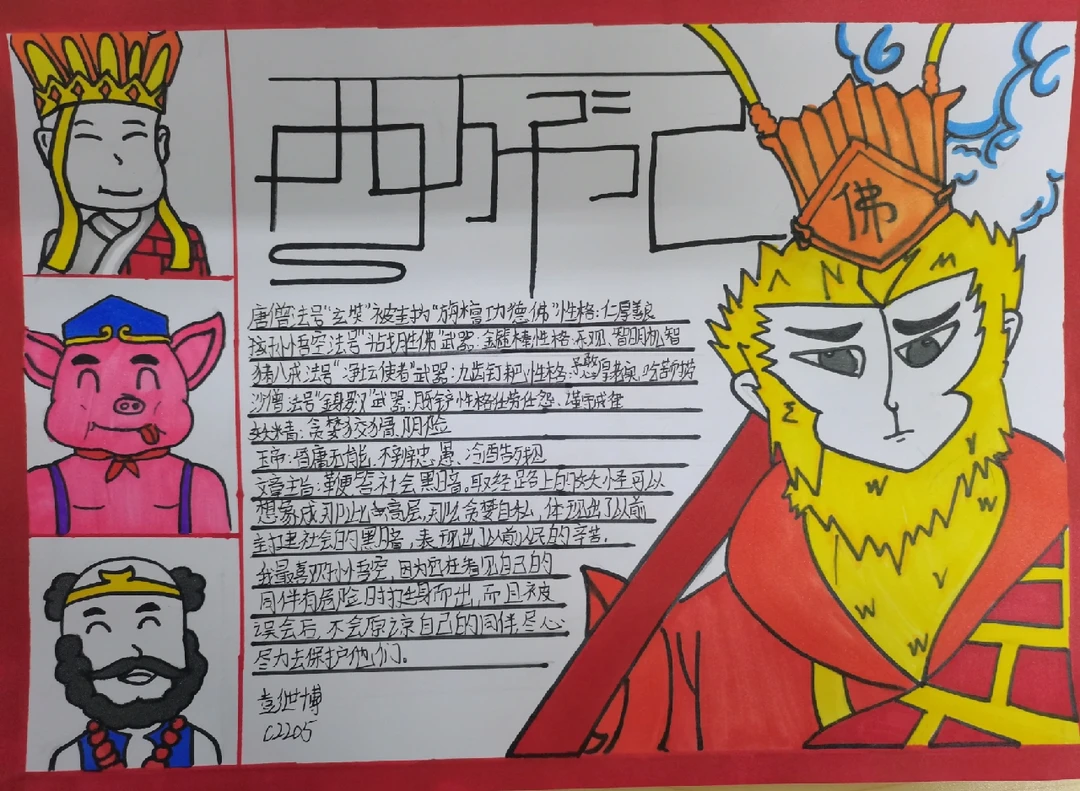 西游记
佛
唐僧法号"玄奘"被封为"旃檀功德佛"性格:仁厚善良
孙悟空法号"斗战胜佛"武器:金箍棒性格:乐观、智明机智
猪八戒法号"净坛使者"武器:九齿钉耙性格:憨厚
沙僧法号"金身罗汉"武器:月牙铲性格任劳任怨
妖精:贪婪狡猾阴险
玉帝:昏庸无能,不辨忠愚、冷酷
文章主旨:鞭笞社会黑暗。取经路上的妖怪可以
想象成那些高层,那么贪婪自私,体现出了以前
封建社会的黑暗,表现出以前人民的辛苦。
我最喜欢孙悟空,因为他在看见自己的
同伴有危险时挺身而出,而且被
误会后,不会原谅自己的同伴,尽心
尽力去保护他们。
世博
C2205